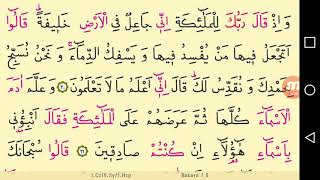 وَاِذْ قَالَ رَبُّكَ لِلْمَلٰٓئِكَةِ اِنّ۪ي جَاعِلٌ فِي الْاَرْضِ خَل۪يفَةًۜ قَالُٓوا
اَتَجْعَلُ ف۪يهَا مَنْ يُفْسِدُ ف۪يهَا وَيَسْفِكُ الدِّمَٓاءَۚ وَنَحْنُ نُسَبِّحُ
بِحَمْدِكَ وَنُقَدِّسُ لَكَۜ قَالَ اِنّ۪ٓي اَعْلَمُ مَا لَا تَعْلَمُونَ وَعَلَّمَ اٰدَمَ
الْاَسْمَٓاءَ كُلَّهَا ثُمَّ عَرَضَهُمْ عَلَى الْمَلٰٓئِكَةِ فَقَالَ اَنْبِؤُ۫ن۪ي
بِاَسْمَٓاءِ هٰٓؤُ۬لَٓاءِ اِنْ كُنْتُمْ صَادِق۪ينَ قَالُوا سُبْحَانَكَ
1.Cz/5.Sy/1.Hzp Bakara / 5